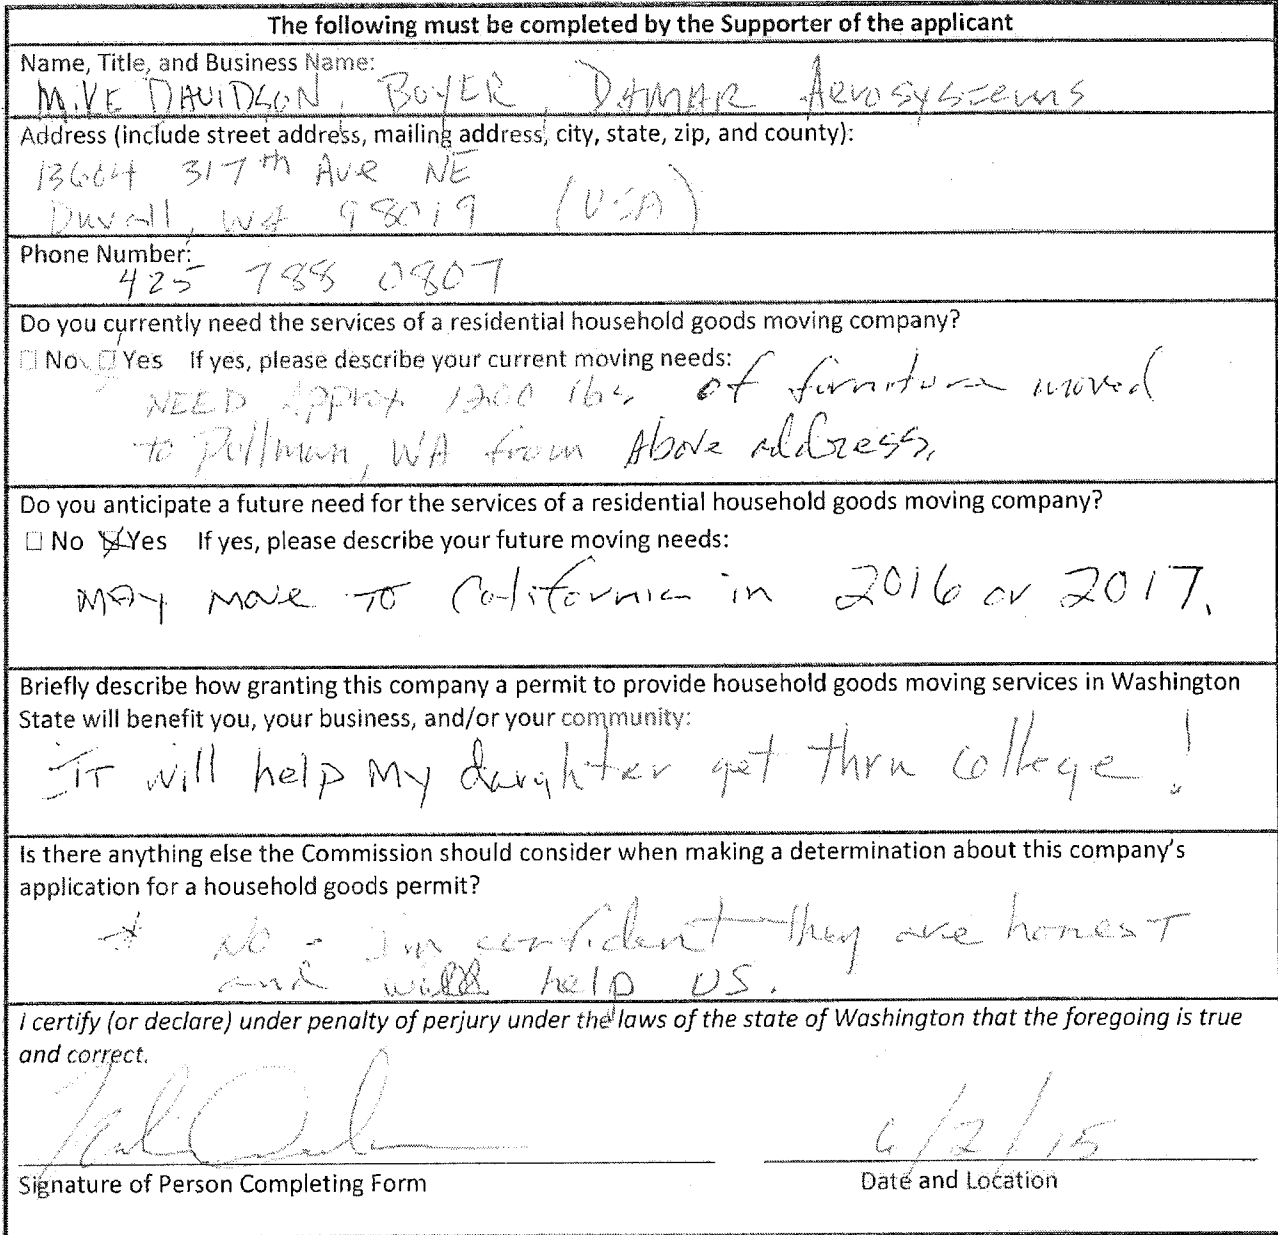 The following must be completed by the Supporter of the applicant
Name, Title, and Business Name:
MIKE DAVIDSON, BUYER, DAMAR Aerosystems
Address (include street address, mailing address, city, state, zip, and county):
13604 317th Ave NE
Duvall, WA 98019 (USA)
Phone Number:
425 788 0807
Do you currently need the services of a residential household goods moving company?
☐ No ☐ Yes If yes, please describe your current moving needs:
NEED Approx 1200 lbs of furniture moved
to Pullman, WA from Above address.
Do you anticipate a future need for the services of a residential household goods moving company?
☐ No ☒ Yes If yes, please describe your future moving needs:
MAY MOVE TO California in 2016 or 2017.
Briefly describe how granting this company a permit to provide household goods moving services in Washington
State will benefit you, your business, and/or your community:
IT will help MY daughter get thru college!
Is there anything else the Commission should consider when making a determination about this company's
application for a household goods permit?
No - I'm confident they are honest
and will help US.
I certify (or declare) under penalty of perjury under the laws of the state of Washington that the foregoing is true
and correct.
6/2/15
Signature of Person Completing Form Date and Location